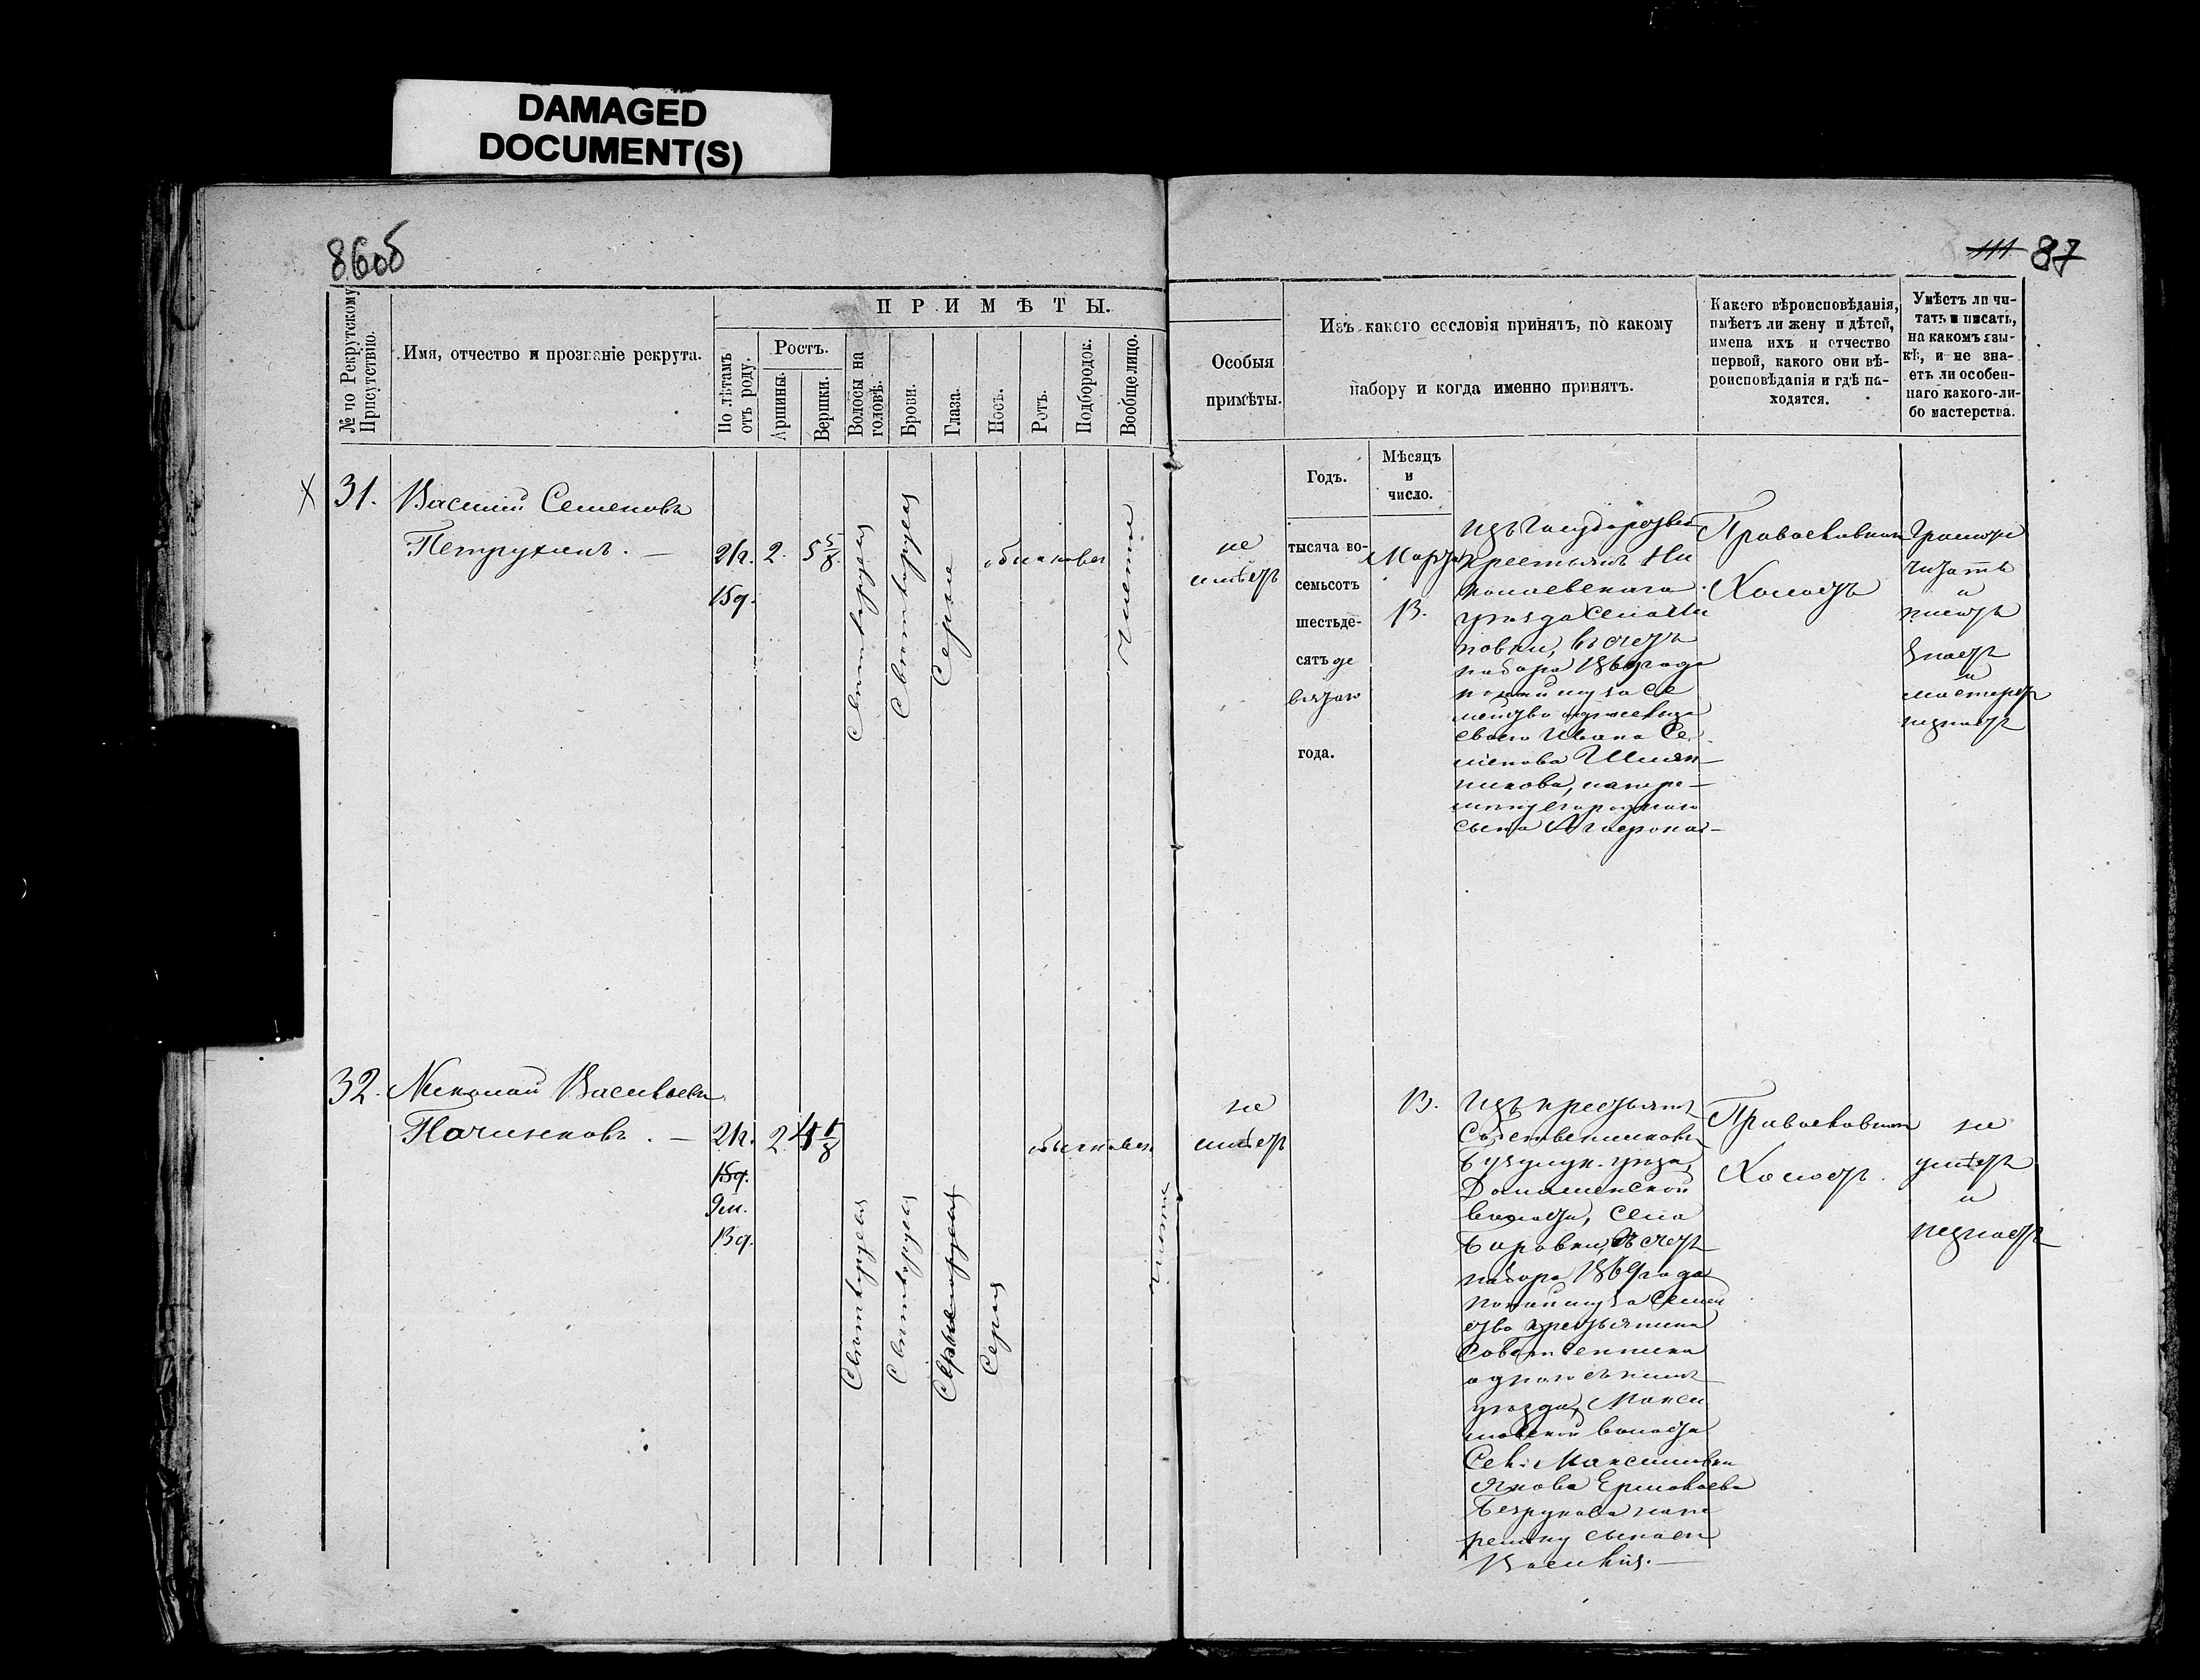 DAMAGED
DOCUMENT(S)
86об
111 87
№ по Рекрутскому Присутствію.
Имя, отчество и прозваніе рекрута.
ПРИМѢТЫ.
По лѣтамъ отъ роду.
Ростъ.
Аршины.
Вершки.
Волосы на головѣ.
Брови.
Глаза.
Носъ.
Ротъ.
Подбородок.
Вообще лицо.
Особыя
примѣты.
Изъ какого сословія принятъ, по какому
набору и когда именно принятъ.
Какого вѣроисповѣданія,
имѣетъ ли жену и дѣтей,
имена ихъ и отчество
первой, какого они вѣ-
роисповѣданія и гдѣ на-
ходятся.
Умѣетъ ли чи-
тать и писать,
на какомъ язы-
кѣ, и не зна-
етъ ли особен-
наго какого-ли-
бо мастерства.
Годъ.
Мѣсяцъ
и
число.
31. Василий Семеновъ
Петрухинъ. —
21г. 2. 5 5/8
15д.
Светлорусыя
Светлорусыя
Серые
обыкновен
Чистое
не
имѣетъ
тысяча во-
семьсотъ
шестьде-
сятъ де
вятаго
года.
Марта
13.
изъ Государствен
крестьянъ Ни
колаевскаго
уѣзда села
новки, въ счетъ
набора 1869 года
по найму за се
мейство
своего Ивана Се
менова
сына
Православнаго
Холостъ
Грамоте
читать
и
писать
знаетъ
и
мастерст
незнаетъ
32. Николай Васильевъ
Починковъ. —
21г. 2. 4 1/8
15д.
9м.
13д.
Светлорусыя
Светлорусыя
Серыя
обыкновен
чистое
не
имѣетъ
13.
Изъ крестьянъ
Собственниковъ
Бузулук. уѣзда,
волости, села
Боровки, въ счетъ
набора 1869 года
по найму за семей
ство крестьянина
Собственника
одного съ нимъ
уѣзда, Макси
мовской волости
Сел. Максимовки
Якова Ермолаева
Безрукова на
сына его
Василія. —
Православнаго
Холостъ.
не
умѣетъ
и
незнаетъ